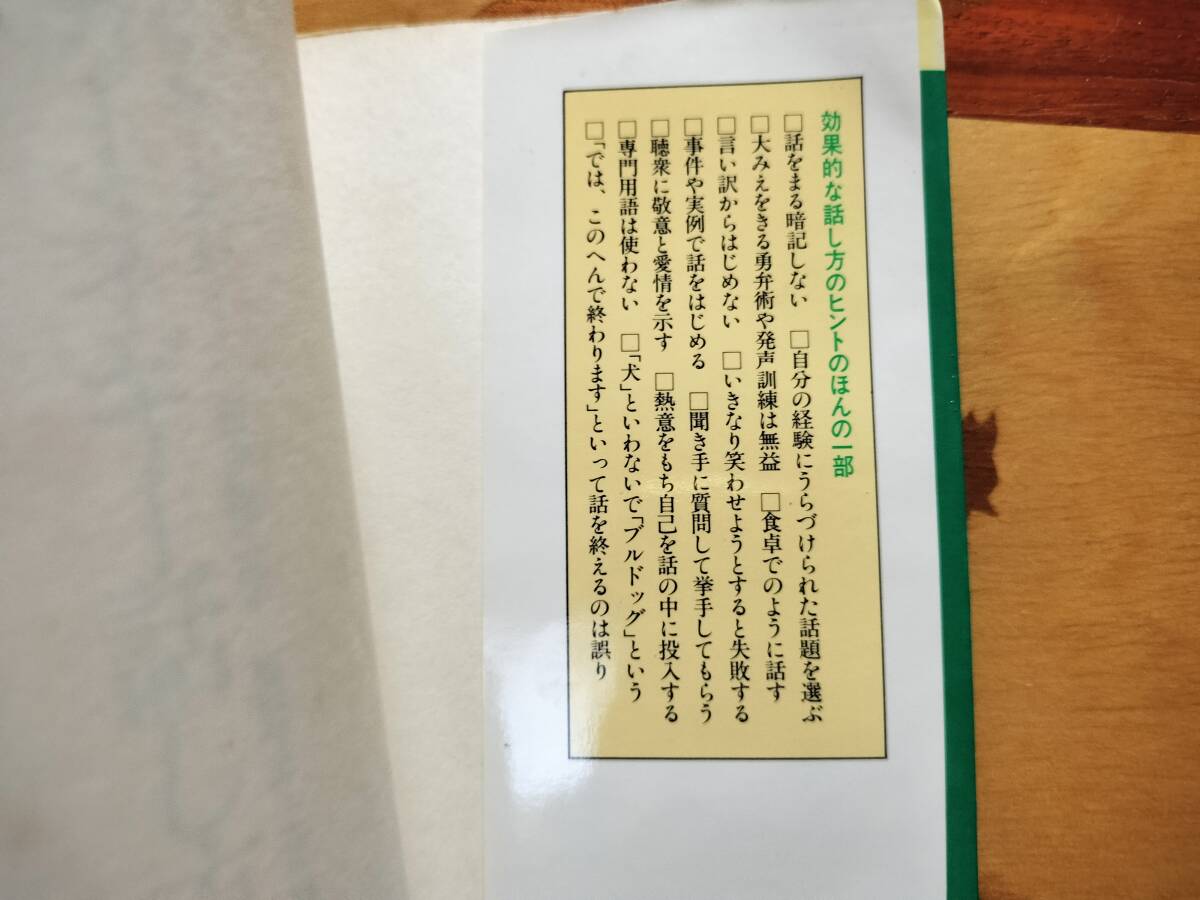 効果的な話し方のヒントのほんの一部
□話をまる暗記しない　□自分の経験にうらづけられた話題を選ぶ
□大みえをきる勇弁術や発声訓練は無益　□食卓でのように話す
□言い訳からはじめない　□いきなり笑わせようとすると失敗する
□事件や実例で話をはじめる　□聞き手に質問して挙手してもらう
□聴衆に敬意と愛情を示す　□熱意をもち自己を話の中に投入する
□専門用語は使わない　□「犬」といわないで「ブルドッグ」という
□「では、このへんで終わります」といって話を終えるのは誤り